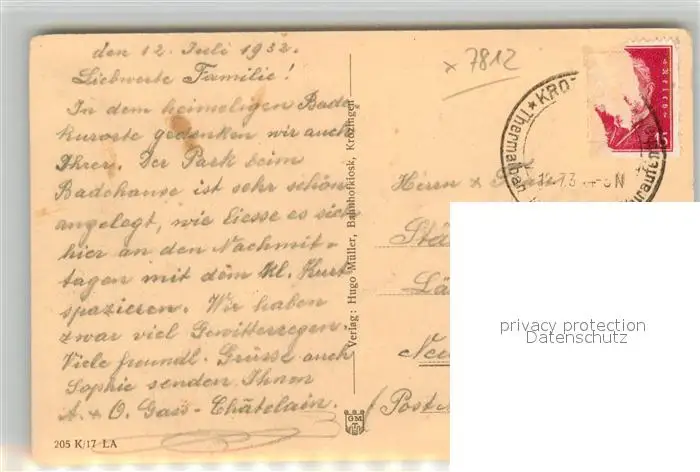 den 12. Juli 1932.
Liebwerte Familie!
In dem heimeligen Bade-
kurorte gedenken wir auch
Ihrer. Der Park beim
Badehause ist sehr schön
angelegt, wie liesse es sich
hier an den Nachmit-
tagen mit dem kl. Kurt
spazieren. Wir haben
zwar viel Gewitterregen.
Viele freundl. Grüsse auch
Sophie senden Ihnen
A. & O. Gass-Châtelain.
205 K/17 LA
Verlag: Hugo Müller, Bahnhofkiosk, Krozingen
GM
x 7812
KROZ
Thermalbad
15
Herrn &
(Post
privacy protection
Datenschutz